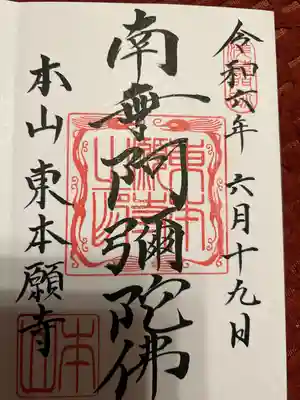 令和六年 六月十九日
南無阿彌陀佛
本山 東本願寺